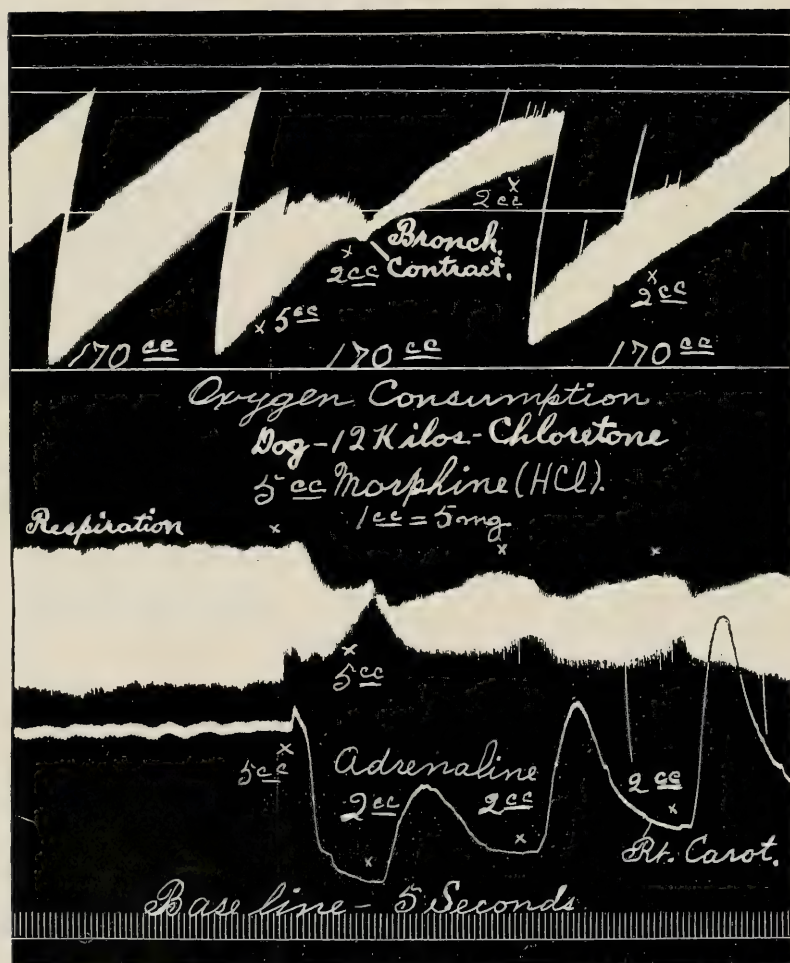 2 cc
Bronch.
Contract.
2 cc
5 cc
2 cc
170 cc 170 cc 170 cc
Oxygen Consumption
Dog-12 Kilos-Chloretone
5 cc Morphine (HCl).
1 cc = 5 mg
Respiration
5 cc
5 cc Adrenaline
2 cc 2 cc 2 cc
Rt. Carot.
Base line - 5 Seconds